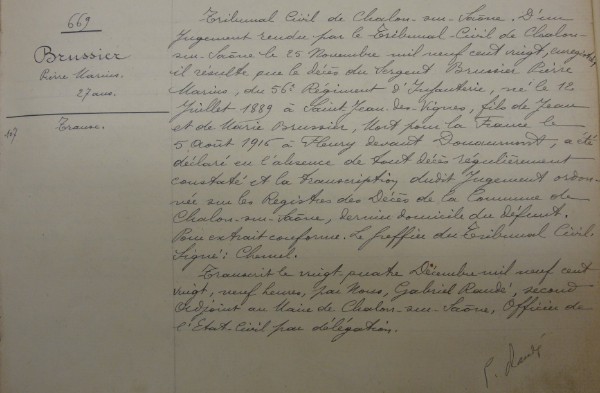 669
Brussier
Pierre Marius.
27 ans.
107
Transc.
Tribunal Civil de Chalon-sur-Saône. D'un
Jugement rendu par le Tribunal Civil de Chalon-
sur-Saône le 25 Novembre mil neuf cent vingt, enregistré,
il résulte que le décès du Sergent Brussier Pierre
Marius, du 56e Régiment d'Infanterie, né le 12
Juillet 1889 à Saint Jean des Vignes, fils de Jean
et de Marie Brussier, Mort pour la France le
5 Août 1916 à Fleury devant Douaumont, a été
déclaré en l'absence de tout décès régulièrement
constaté et la transcription dudit Jugement ordon-
née sur les Registres des Décès de la Commune de
Chalon-sur-Saône, dernier domicile du défunt.
Pour extrait conforme. Le Greffier du Tribunal Civil.
Signé: Chemel.
Transcrit le vingt-quatre Décembre mil neuf cent
vingt, neuf heures, par Nous, Gabriel Randé, second
Adjoint au Maire de Chalon-sur-Saône, Officier de
l'Etat Civil par délégation.